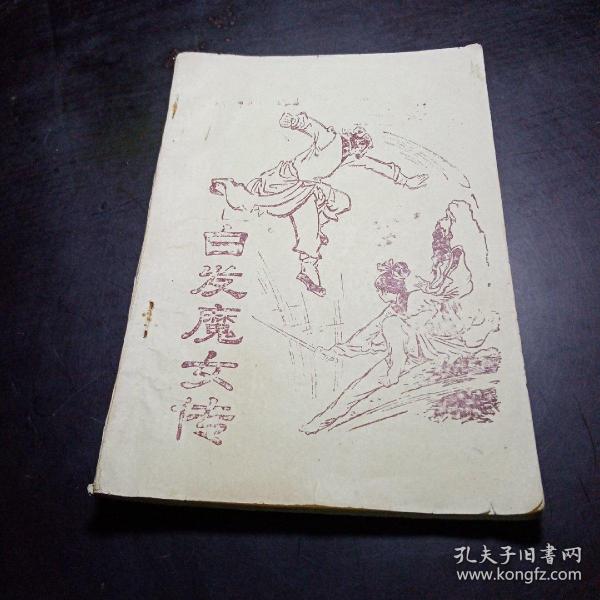 白发魔女传
孔夫子旧書网
www.kongfz.com